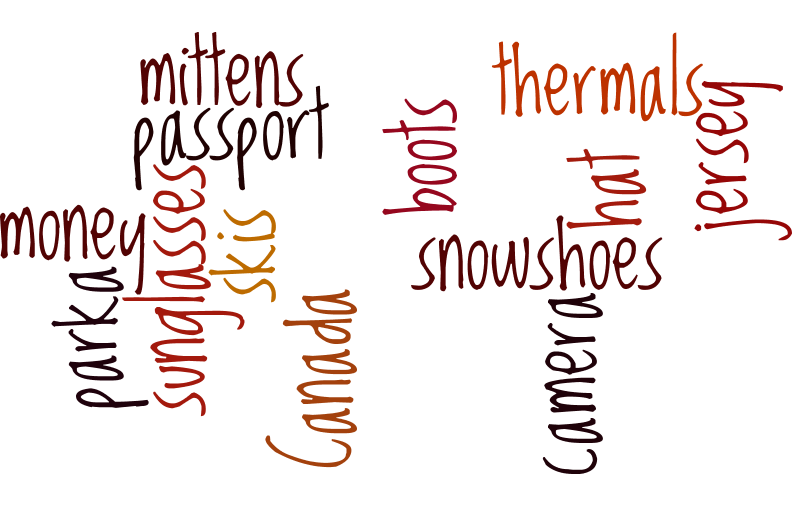 mittens
thermals
passport
jersey
boots
hat
money
sunglasses
skis
snowshoes
parka
Canada
camera